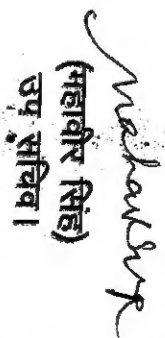 Mahavir
(महावीर सिंह)
उप सचिव।